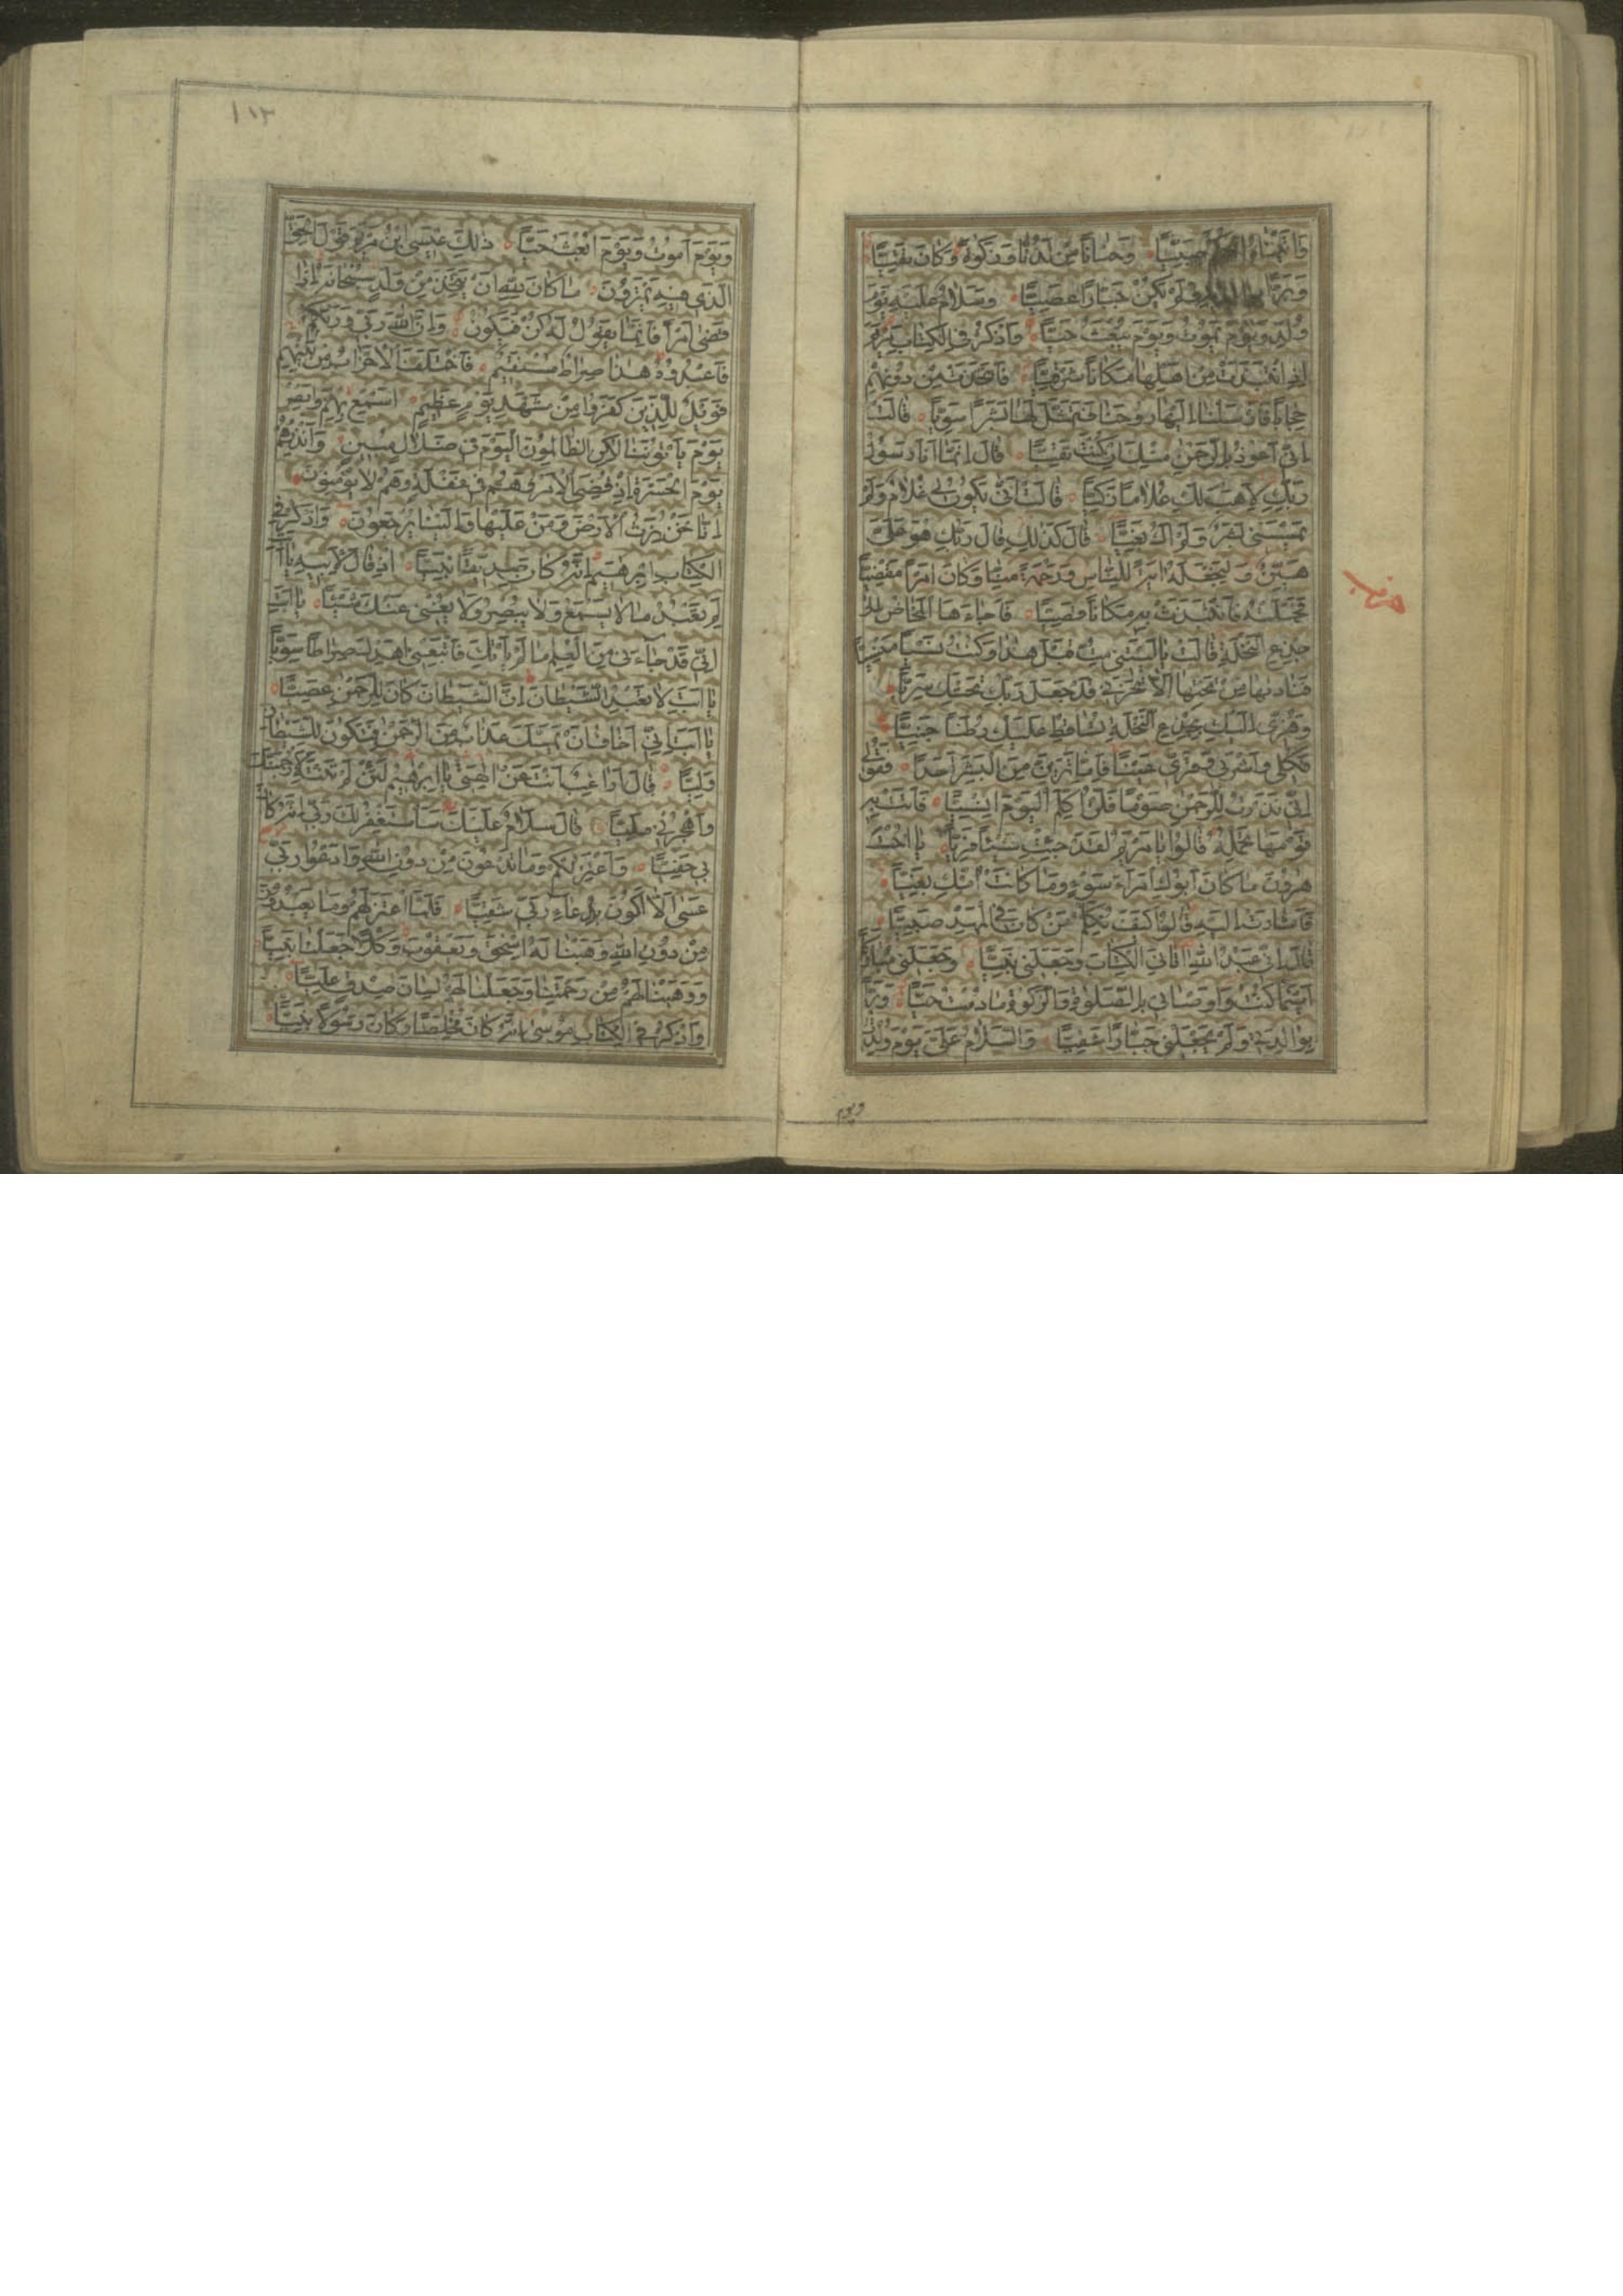 وَاٰتَيْنَاهُ الْحُكْمَ صَبِيًّا وَحَنَانًا مِنْ لَدُنَّا وَزَكٰوةً وَكَانَ تَقِيًّا
وَبَرًّا بِوَالِدَيْهِ وَلَمْ يَكُنْ جَبَّارًا عَصِيًّا وَسَلَامٌ عَلَيْهِ يَوْمَ
وُلِدَ وَيَوْمَ يَمُوتُ وَيَوْمَ يُبْعَثُ حَيًّا وَاذْكُرْ فِي الْكِتَابِ مَرْيَمَ
اِذِ انْتَبَذَتْ مِنْ اَهْلِهَا مَكَانًا شَرْقِيًّا فَاتَّخَذَتْ مِنْ دُونِهِمْ
حِجَابًا فَاَرْسَلْنَا اِلَيْهَا رُوحَنَا فَتَمَثَّلَ لَهَا بَشَرًا سَوِيًّا قَالَتْ
اِنِّي اَعُوذُ بِالرَّحْمٰنِ مِنْكَ اِنْ كُنْتَ تَقِيًّا قَالَ اِنَّمَا اَنَا رَسُولُ
رَبِّكِ لِاَهَبَ لَكِ غُلَامًا زَكِيًّا قَالَتْ اَنّٰى يَكُونُ لِي غُلَامٌ وَلَمْ
يَمْسَسْنِي بَشَرٌ وَلَمْ اَكُ بَغِيًّا قَالَ كَذٰلِكِ قَالَ رَبُّكِ هُوَ عَلَيَّ
هَيِّنٌ وَلِنَجْعَلَهُ اٰيَةً لِلنَّاسِ وَرَحْمَةً مِنَّا وَكَانَ اَمْرًا مَقْضِيًّا
حزب
فَحَمَلَتْهُ فَانْتَبَذَتْ بِهِ مَكَانًا قَصِيًّا فَاَجَاءَهَا الْمَخَاضُ اِلٰى
جِذْعِ النَّخْلَةِ قَالَتْ يَا لَيْتَنِي مِتُّ قَبْلَ هٰذَا وَكُنْتُ نَسْيًا مَنْسِيًّا
فَنَادٰيهَا مِنْ تَحْتِهَا اَلَّا تَحْزَنِي قَدْ جَعَلَ رَبُّكِ تَحْتَكِ سَرِيًّا
وَهُزِّي اِلَيْكِ بِجِذْعِ النَّخْلَةِ تُسَاقِطْ عَلَيْكِ رُطَبًا جَنِيًّا
فَكُلِي وَاشْرَبِي وَقَرِّي عَيْنًا فَاِمَّا تَرَيِنَّ مِنَ الْبَشَرِ اَحَدًا فَقُولِي
اِنِّي نَذَرْتُ لِلرَّحْمٰنِ صَوْمًا فَلَنْ اُكَلِّمَ الْيَوْمَ اِنْسِيًّا فَاَتَتْ بِهِ
قَوْمَهَا تَحْمِلُهُ قَالُوا يَا مَرْيَمُ لَقَدْ جِئْتِ شَيْئًا فَرِيًّا يَا اُخْتَ
هٰرُونَ مَا كَانَ اَبُوكِ امْرَاَ سَوْءٍ وَمَا كَانَتْ اُمُّكِ بَغِيًّا
فَاَشَارَتْ اِلَيْهِ قَالُوا كَيْفَ نُكَلِّمُ مَنْ كَانَ فِي الْمَهْدِ صَبِيًّا
قَالَ اِنِّي عَبْدُ اللّٰهِ اٰتَانِيَ الْكِتَابَ وَجَعَلَنِي نَبِيًّا وَجَعَلَنِي مُبَارَكًا
اَيْنَمَا كُنْتُ وَاَوْصَانِي بِالصَّلٰوةِ وَالزَّكٰوةِ مَا دُمْتُ حَيًّا وَبَرًّا
بِوَالِدَتِي وَلَمْ يَجْعَلْنِي جَبَّارًا شَقِيًّا وَالسَّلَامُ عَلَيَّ يَوْمَ وُلِدْتُ
ويوم
١١٣
وَيَوْمَ اَمُوتُ وَيَوْمَ اُبْعَثُ حَيًّا ذٰلِكَ عِيسَى ابْنُ مَرْيَمَ قَوْلَ الْحَقِّ
الَّذِي فِيهِ يَمْتَرُونَ مَا كَانَ لِلّٰهِ اَنْ يَتَّخِذَ مِنْ وَلَدٍ سُبْحَانَهُ اِذَا
قَضٰى اَمْرًا فَاِنَّمَا يَقُولُ لَهُ كُنْ فَيَكُونُ وَاِنَّ اللّٰهَ رَبِّي وَرَبُّكُمْ
فَاعْبُدُوهُ هٰذَا صِرَاطٌ مُسْتَقِيمٌ فَاخْتَلَفَ الْاَحْزَابُ مِنْ بَيْنِهِمْ
فَوَيْلٌ لِلَّذِينَ كَفَرُوا مِنْ مَشْهَدِ يَوْمٍ عَظِيمٍ اَسْمِعْ بِهِمْ وَاَبْصِرْ
يَوْمَ يَاْتُونَنَا لٰكِنِ الظَّالِمُونَ الْيَوْمَ فِي ضَلَالٍ مُبِينٍ وَاَنْذِرْهُمْ
يَوْمَ الْحَسْرَةِ اِذْ قُضِيَ الْاَمْرُ وَهُمْ فِي غَفْلَةٍ وَهُمْ لَا يُؤْمِنُونَ
اِنَّا نَحْنُ نَرِثُ الْاَرْضَ وَمَنْ عَلَيْهَا وَاِلَيْنَا يُرْجَعُونَ وَاذْكُرْ فِي
الْكِتَابِ اِبْرٰهِيمَ اِنَّهُ كَانَ صِدِّيقًا نَبِيًّا اِذْ قَالَ لِاَبِيهِ يَا اَبَتِ
لِمَ تَعْبُدُ مَا لَا يَسْمَعُ وَلَا يُبْصِرُ وَلَا يُغْنِي عَنْكَ شَيْئًا يَا اَبَتِ
اِنِّي قَدْ جَاءَنِي مِنَ الْعِلْمِ مَا لَمْ يَاْتِكَ فَاتَّبِعْنِي اَهْدِكَ صِرَاطًا سَوِيًّا
يَا اَبَتِ لَا تَعْبُدِ الشَّيْطَانَ اِنَّ الشَّيْطَانَ كَانَ لِلرَّحْمٰنِ عَصِيًّا
يَا اَبَتِ اِنِّي اَخَافُ اَنْ يَمَسَّكَ عَذَابٌ مِنَ الرَّحْمٰنِ فَتَكُونَ لِلشَّيْطَانِ
وَلِيًّا قَالَ اَرَاغِبٌ اَنْتَ عَنْ اٰلِهَتِي يَا اِبْرٰهِيمُ لَئِنْ لَمْ تَنْتَهِ لَاَرْجُمَنَّكَ
وَاهْجُرْنِي مَلِيًّا قَالَ سَلَامٌ عَلَيْكَ سَاَسْتَغْفِرُ لَكَ رَبِّي اِنَّهُ كَانَ
بِي حَفِيًّا وَاَعْتَزِلُكُمْ وَمَا تَدْعُونَ مِنْ دُونِ اللّٰهِ وَاَدْعُوا رَبِّي
عَسٰى اَلَّا اَكُونَ بِدُعَاءِ رَبِّي شَقِيًّا فَلَمَّا اعْتَزَلَهُمْ وَمَا يَعْبُدُونَ
مِنْ دُونِ اللّٰهِ وَهَبْنَا لَهُ اِسْحٰقَ وَيَعْقُوبَ وَكُلًّا جَعَلْنَا نَبِيًّا
وَوَهَبْنَا لَهُمْ مِنْ رَحْمَتِنَا وَجَعَلْنَا لَهُمْ لِسَانَ صِدْقٍ عَلِيًّا
وَاذْكُرْ فِي الْكِتَابِ مُوسٰى اِنَّهُ كَانَ مُخْلَصًا وَكَانَ رَسُولًا نَبِيًّا